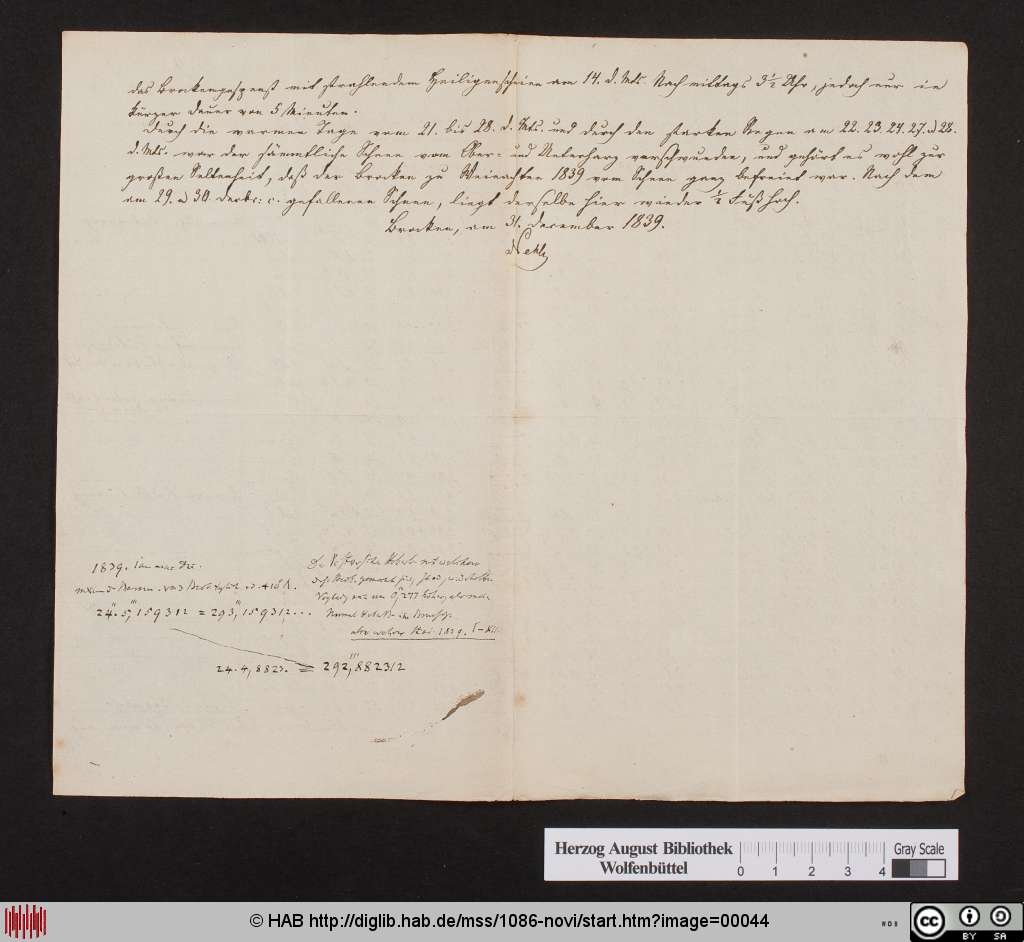 das Brockengespenst mit strahlendem Heiligenschein am 14. d. Mts. Nachmittags 3½ Uhr, jedoch nur in
kurzer Dauer von 5 Minuten.
Durch die warmen Tage vom 21. bis 28. d. Mts. und durch den starken Regen am 22. 23. 24. 27. u 28.
d. Mts. war der sämmtliche Schnee vom Ober- und Unterharz verschwunden, und gehört es wohl zur
großen Seltenheit, daß der Brocken zu Weinachten 1839 vom Schnee ganz befreiet war. Nach dem
am 29. u 30. gefallenen Schnee, liegt derselbe hier wieder ½ Fuß hoch.
Brocken, am 31. December 1839.
Nehse
1839. Januar Dec.
24". 5,'''159312 = 293,'''159312...
0,'''277 höher
1839. I-XII.
24. 4, 8823. = 292,'''882312
Herzog August Bibliothek
Wolfenbüttel
0 1 2 3 4
Gray Scale
© HAB http://diglib.hab.de/mss/1086-novi/start.htm?image=00044
cc
BY SA